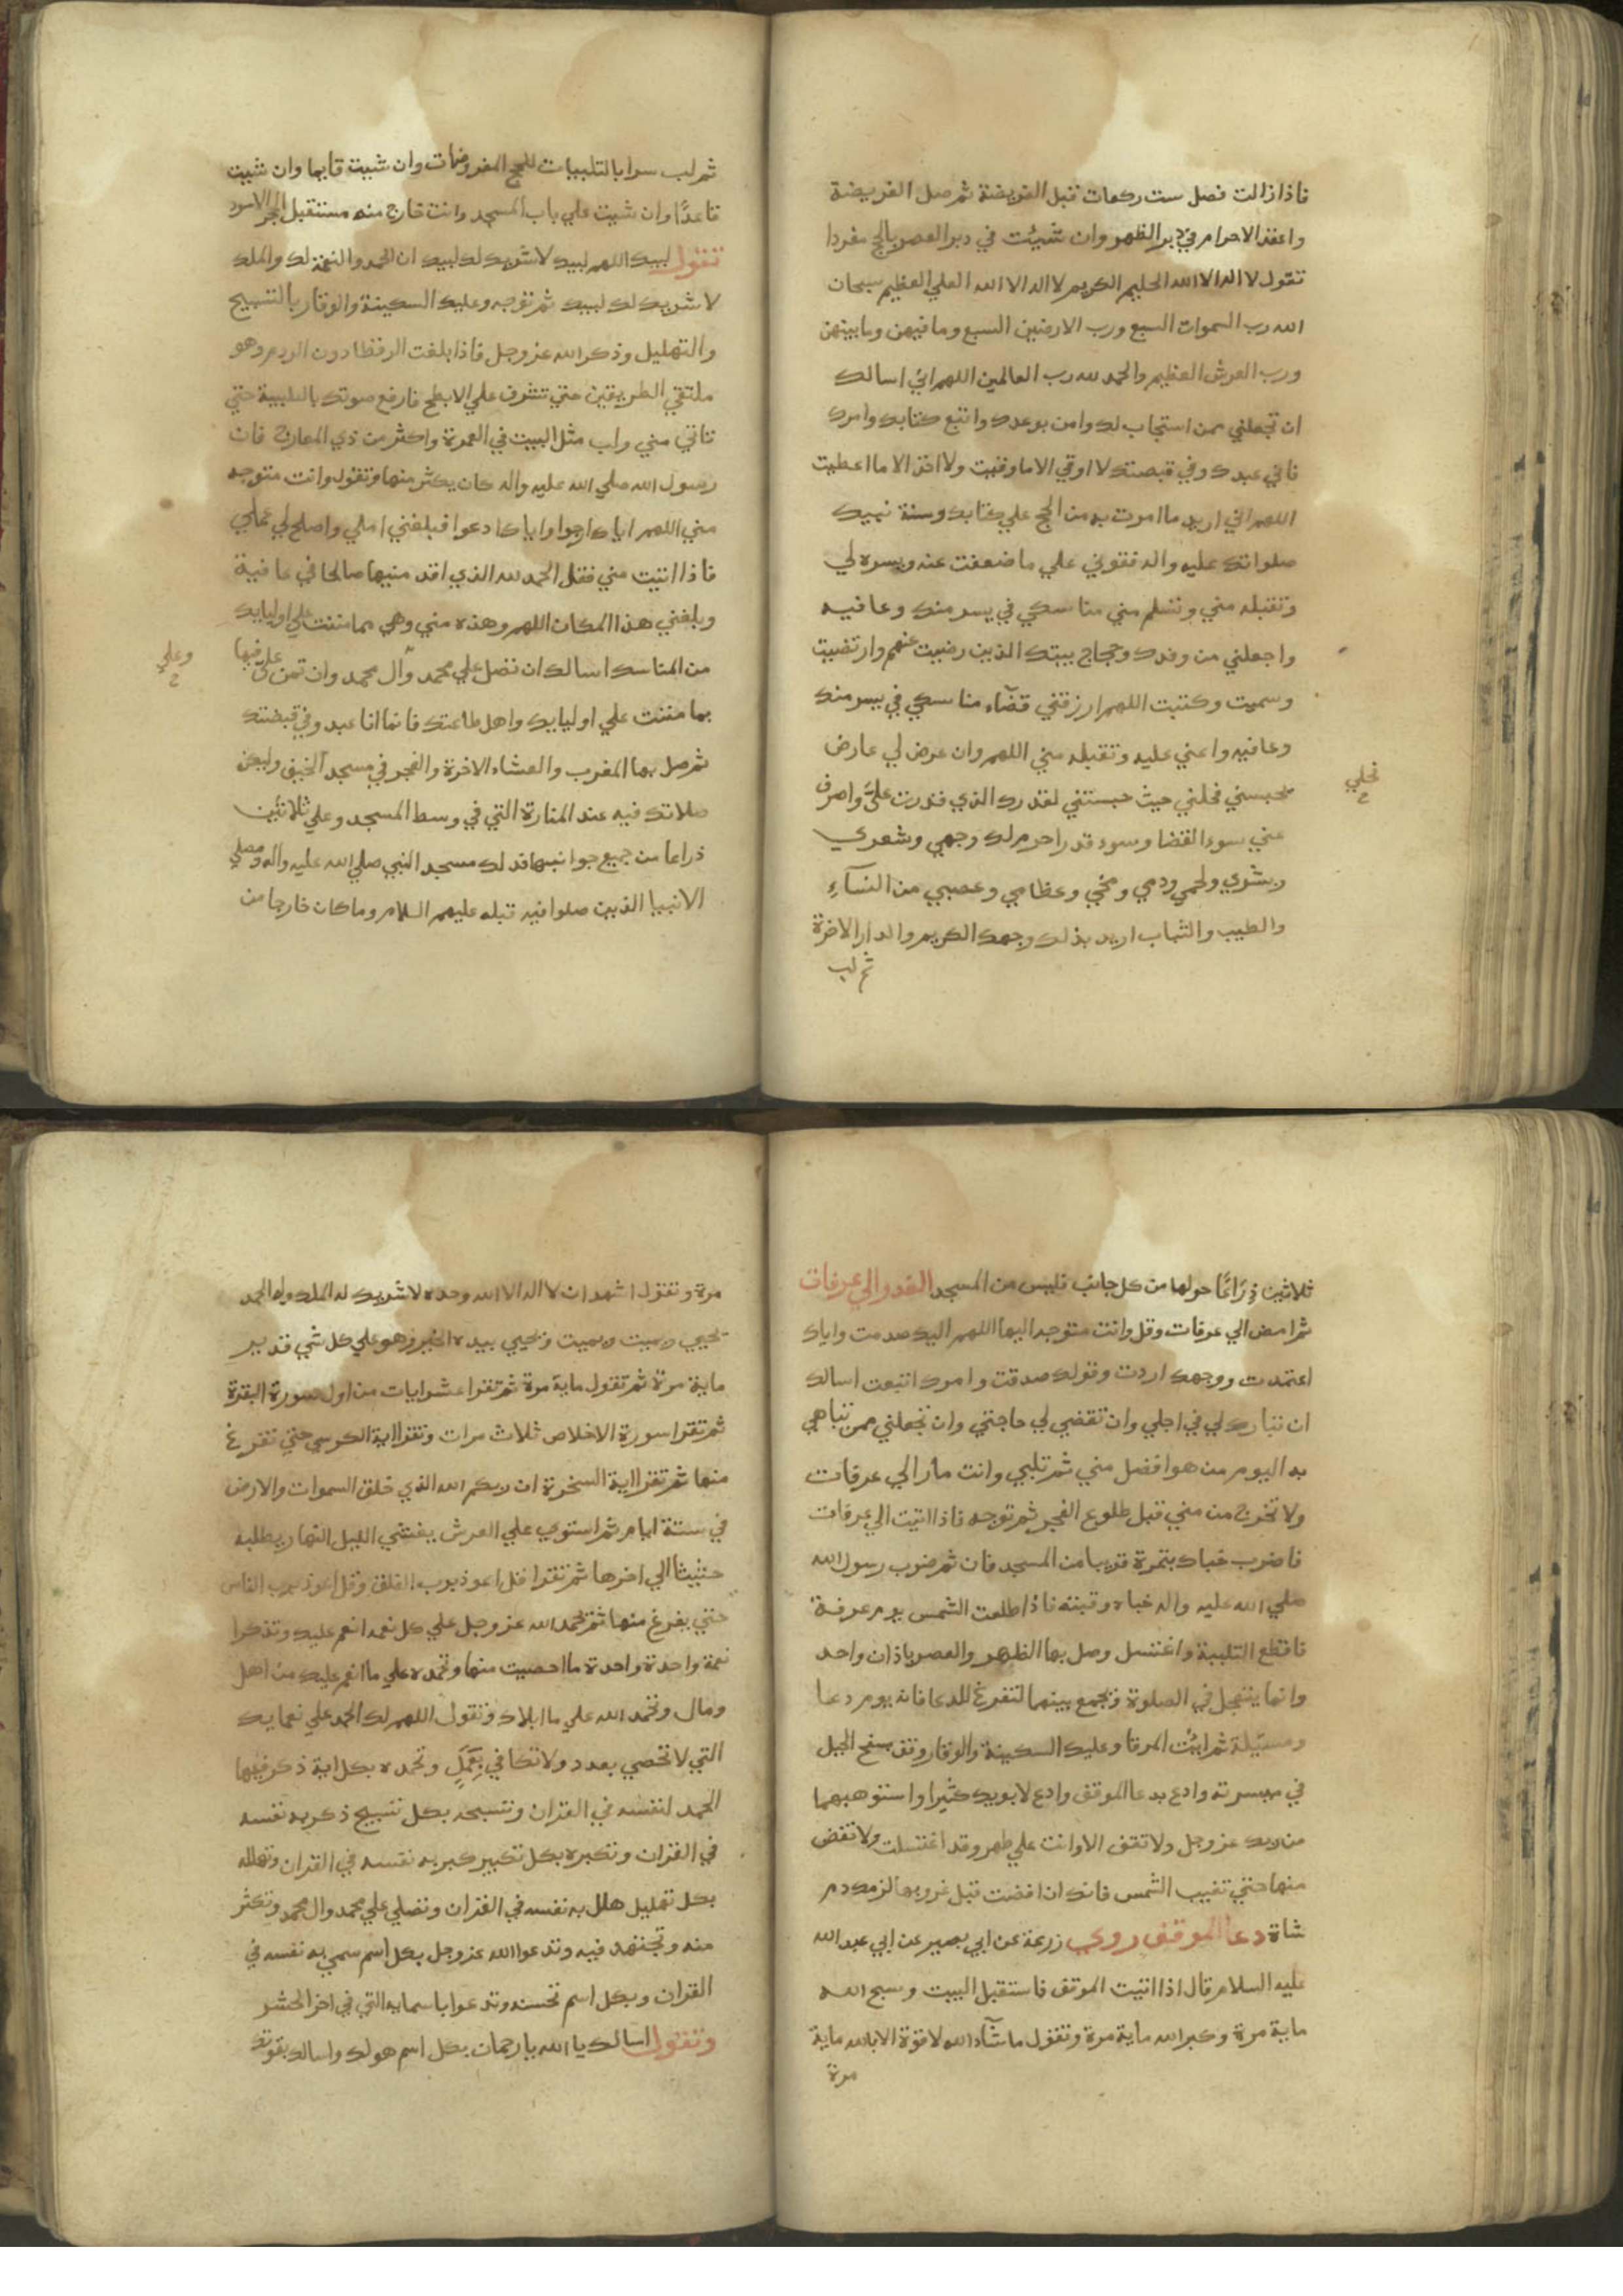 فاذا زالت فصل ست ركعات قبل الفريضة ثم صل الفريضة
واعقد الاحرام في دبر الظهر وان شئت في دبر العصر بالحج مفردا
تقول لا اله الا الله الحليم الكريم لا اله الا الله العلي العظيم سبحان
الله رب السموات السبع ورب الارضين السبع وما فيهن وما بينهن
ورب العرش العظيم والحمد لله رب العالمين اللهم اني اسالك
ان تجعلني ممن استجاب لك وامن بوعدك واتبع كتابك وامرك
فاني عبدك وفي قبضتك لا اوقي الا ما وقيت ولا اخذ الا ما اعطيت
اللهم اني اريد ما امرت به من الحج علي كتابك وسنة نبيك
صلواتك عليه واله فقوني علي ما ضعفت عنه ويسره لي
وتقبله مني وتسلم مني مناسكي في يسر منك وعافيه
واجعلني من وفدك وحجاج بيتك الذين رضيت عنهم وارتضيت
وسميت وكتبت اللهم ارزقني قضآء مناسكي في يسر منك
وعافيه واعني عليه وتقبله مني اللهم وان عرض لي عارض
يحبسني فحلني حيث حبستني لقدرك الذي قدرت عليَّ واصرف
عني سوء القضا وسوء قدر احرم لك وجهي وشعري
وبشري ولحمي ودمي ومخي وعظامي وعصبي من النسآء
والطيب والثياب اريد بذلك وجهك الكريم والدار الاخرة
ثم لب
فحلي
ثم لب سرا بالتلبيات للحج المفروضات وان شيت قايما وان شيت
قاعدًا وان شيت علي باب المسجد وانت خارج منه مستقبل الحجر الاسود
تقول لبيك اللهم لبيك لا شريك لك لبيك ان الحمد والنعمة لك والملك
لا شريك لك لبيك ثم توجه وعليك السكينة والوقار بالتسبيح
والتهليل وذكر الله عز وجل فاذا بلغت الرفطا دون الردم وهو
ملتقي الطريقين حتي تشرف علي الابطح فارفع صوتك بالتلبية حتي
تاتي مني ولب مثل البيت في العمرة واكثر من ذي المعارج فان
رسول الله صلي الله عليه واله كان يكثر منها وتقول وانت متوجه
مني اللهم اياك ارجوا واياك ادعوا فبلغني املي واصلح لي عملي
فاذا اتيت مني فقل الحمد لله الذي اقدمنيها صالحا في عافية
وبلغني هذا المكان اللهم وهذه مني وهي مما مننت علي اوليايك
من المناسك اسالك ان تصل علي محمد وآل محمد وان تمن عليّ فيها
بما مننت علي اوليايك واهل طاعتك فانما انا عبدك وفي قبضتك
ثم صل بها المغرب والعشاء الاخرة والفجر في مسجد الخيف وليكن
صلاتك فيه عند المنارة التي في وسط المسجد وعلي ثلاثين
ذراعا من جميع جوانبها فذلك مسجد النبي صلي الله عليه واله ومصلي
الانبيا الذين صلوا فيه قبله عليهم السلام وما كان خارجا من
وعلي
ثلاثين ذِرَاعًا حولها من كل جانب فليس من المسجد الغدو الي عرفات
ثم امض الي عرفات وقل وانت متوجه اليها اللهم اليك صمدت واياك
اعتمدت ووجهك اردت وقولك صدقت وامرك اتبعت اسالك
ان تبارك لي في اجلي وان تقضي لي حاجتي وان تجعلني ممن تباهي
به اليوم من هو افضل مني ثم تلبي وانت مار الي عرفات
ولا تخرج من مني قبل طلوع الفجر ثم توجه فاذا اتيت الي عرفات
فاضرب خباك بنمرة قريبا من المسجد فان ثم ضرب رسول الله
صلي الله عليه واله خباه وقبته فاذا طلعت الشمس يوم عرفة
فاقطع التلبية واغتسل وصل بها الظهر والعصر باذان واحد
وانما يتعجل في الصلوة ويجمع بينهما لتفرغ للدعا فانه يوم دعا
ومسئلة ثم ايت الموقف وعليك السكينة والوقار وقف بسفح الجبل
في ميسرته وادع بدعا الموقف وادع لابويك كثيرا واستوهبهما
من ربك عز وجل ولا تقف الا وانت علي طهر وقد اغتسلت ولا تفض
منها حتي تغيب الشمس فانك ان افضت قبل غروبها لزمك دم
شاة دعا الموقف روي زرعة عن ابي بصير عن ابي عبد الله
عليه السلام قال اذا اتيت الموقف فاستقبل البيت وسبح الله
ماية مرة وكبر الله ماية مرة وتقول ما شآء الله لا قوة الا بالله ماية
مرة
مرة وتقول اشهد ان لا اله الا الله وحده لا شريك له الملك وله الحمد
يحيي ويميت ويميت ويحيي بيده الخير وهو علي كل شي قدير
ماية مرة ثم تقول ماية مرة ثم تقرا عشر ايات من اول سورة البقرة
ثم تقرا سورة الاخلاص ثلاث مرات وتقرا اية الكرسي حتي تفرغ
منها ثم تقرا اية السخرة ان ربكم الله الذي خلق السموات والارض
في ستة ايام ثم استوي علي العرش يغشي الليل النهار يطلبه
حثيثا الي اخرها ثم تقرا قل اعوذ برب الفلق وقل اعوذ برب الناس
حتي يفرغ منها ثم تحمد الله عز وجل علي كل نعمه انعم عليك وتذكر
نعمة واحدة واحدة ما احصيت منها وتحمده علي ما انعم عليك من اهل
ومال وتحمد الله علي ما ابلاك وتقول اللهم لك الحمد علي نعمايك
التي لا تحصي بعدد ولا تكافي بِعَمَلٍ وتحمده بكل اية ذكر فيها
الحمد لنفسه في القران وتسبحه بكل تسبيح ذكر به نفسه
في القران وتكبره بكل تكبير كبر به نفسه في القران وتهلله
بكل تهليل هلل به نفسه في القران وتصلي علي محمد وال محمد وتكثر
منه وتجتهد فيه وتدعوا الله عز وجل بكل اسم سمي به نفسه في
القران وبكل اسم تحسنه وتدعوا باسمايه التي في اخر الحشر
وتقول اسالك يا الله يا رحمان بكل اسم هو لك واسالك بقوتك